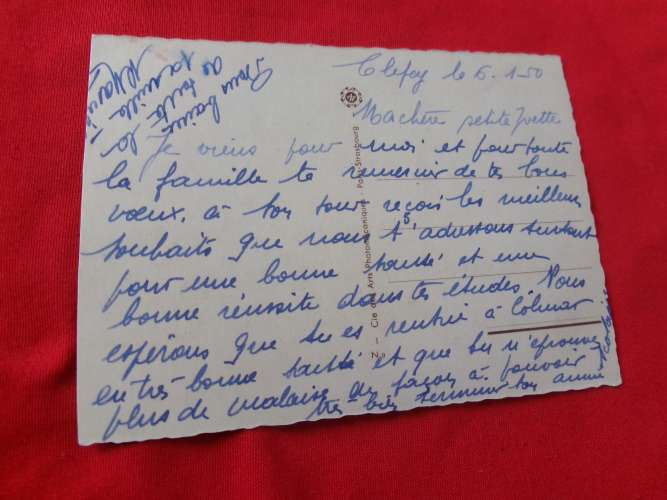 Clefcy le 6.1.50
Ma chère petite Yvette
Je viens pour moi et pour toute
la famille te remercier de tes bons
vœux, à ton tour reçois les meilleurs
souhaits que nous t'adressons surtout
pour une bonne santé et une
bonne réussite dans tes études. Nous
espérons que tu es rentrée à Colmar
en très bonne santé et que tu n'éprouves
plus de malaise de façon à pouvoir
très bien terminer ton année
scolaire
Bons baisers
de toute la
famille
N° - Cie des Arts Photomécaniques - Paris-Strasbourg